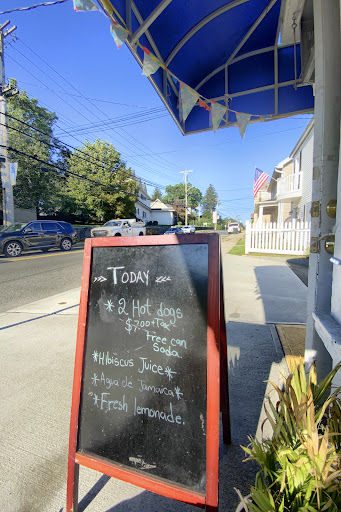 »» TODAY ««
* 2 Hot dogs
$7.00+Tax
Free can
Soda
*Hibiscus Juice*
*Agua de Jamaica*
*Fresh lemonade.